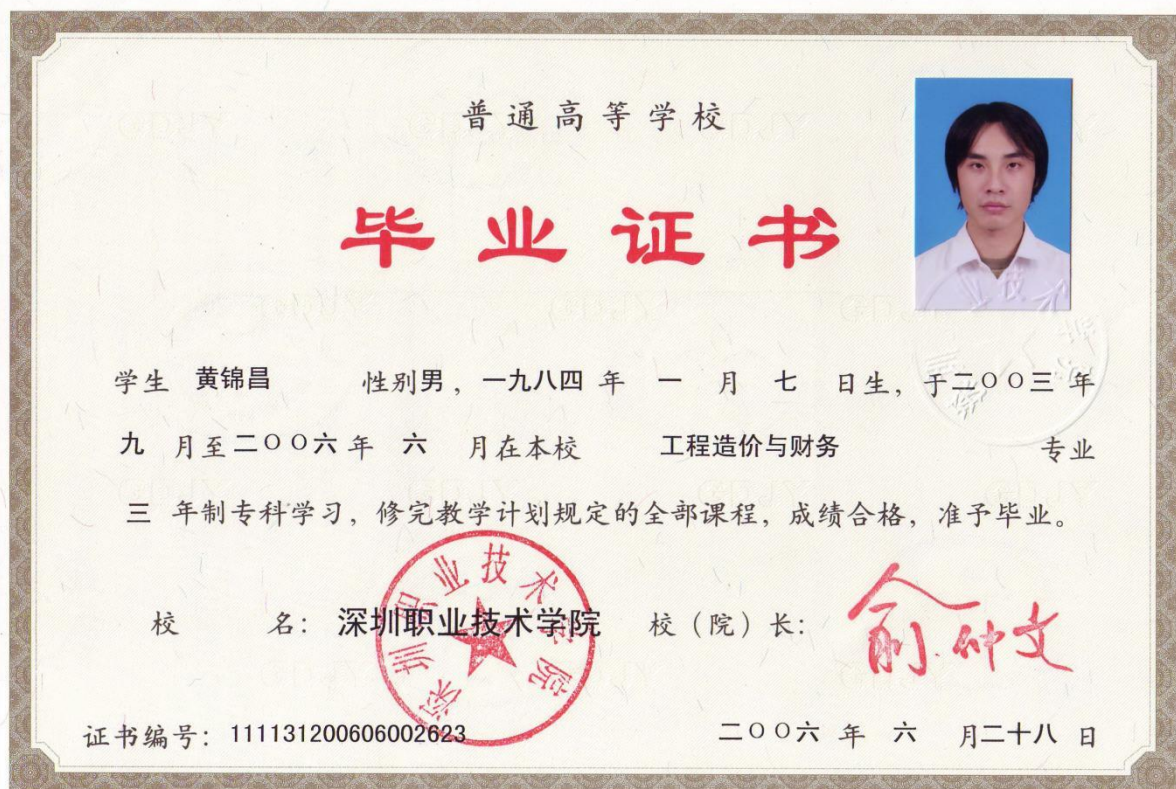 普通高等学校
毕业证书
学生 黄锦昌 性别男，一九八四 年 一 月 七 日生，于二〇〇三 年
九 月至二〇〇六年 六 月在本校 工程造价与财务 专业
三 年制专科学习，修完教学计划规定的全部课程，成绩合格，准予毕业。
校 名：深圳职业技术学院 校（院）长：俞仲文
深圳职业技术学院
证书编号：111131200606002623 二〇〇六 年 六 月二十八 日